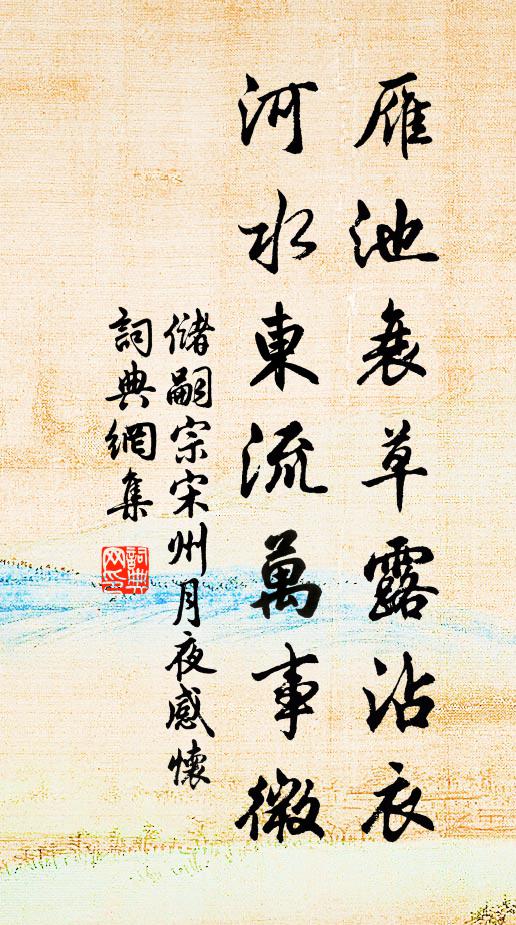 雁池衰草露沾衣
河水東流萬事微
儲嗣宗宋州月夜感懷
詞典網集
詞典網印